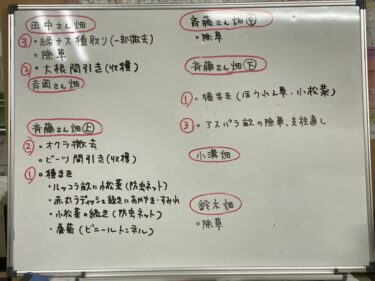 田中さん畑
③・緑ナス種取り(一部撤去)
・除草
②・大根間引き(収穫)
吉岡さん畑
斉藤さん畑(上)
②・オクラ撤去
・ビーツ間引き(収穫)
①・種まき
・ルッコラ畝に小松菜(防虫ネット)
・赤丸ラディッシュの続きにあやめ・すみれ
・小松菜の続き(防虫ネット)
・春菊(ビニールトンネル)
斉藤さん畑(中)
・除草
斉藤さん畑(下)
①・種まき(ほうれん草・小松菜)
③・アスパラ畝の除草、支柱直し
小溝畑
鈴木畑
・除草